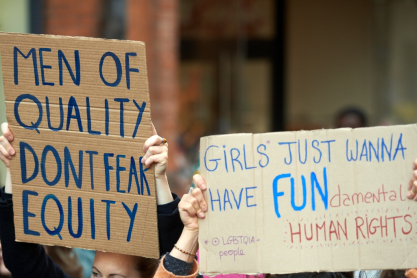 MEN OF
QUALITY
DONT FEAR
EQUITY
GiRLS* JUST WANNA
HAVE FUNdamental
HUMAN RIGHTS
LGBTQIA-
people